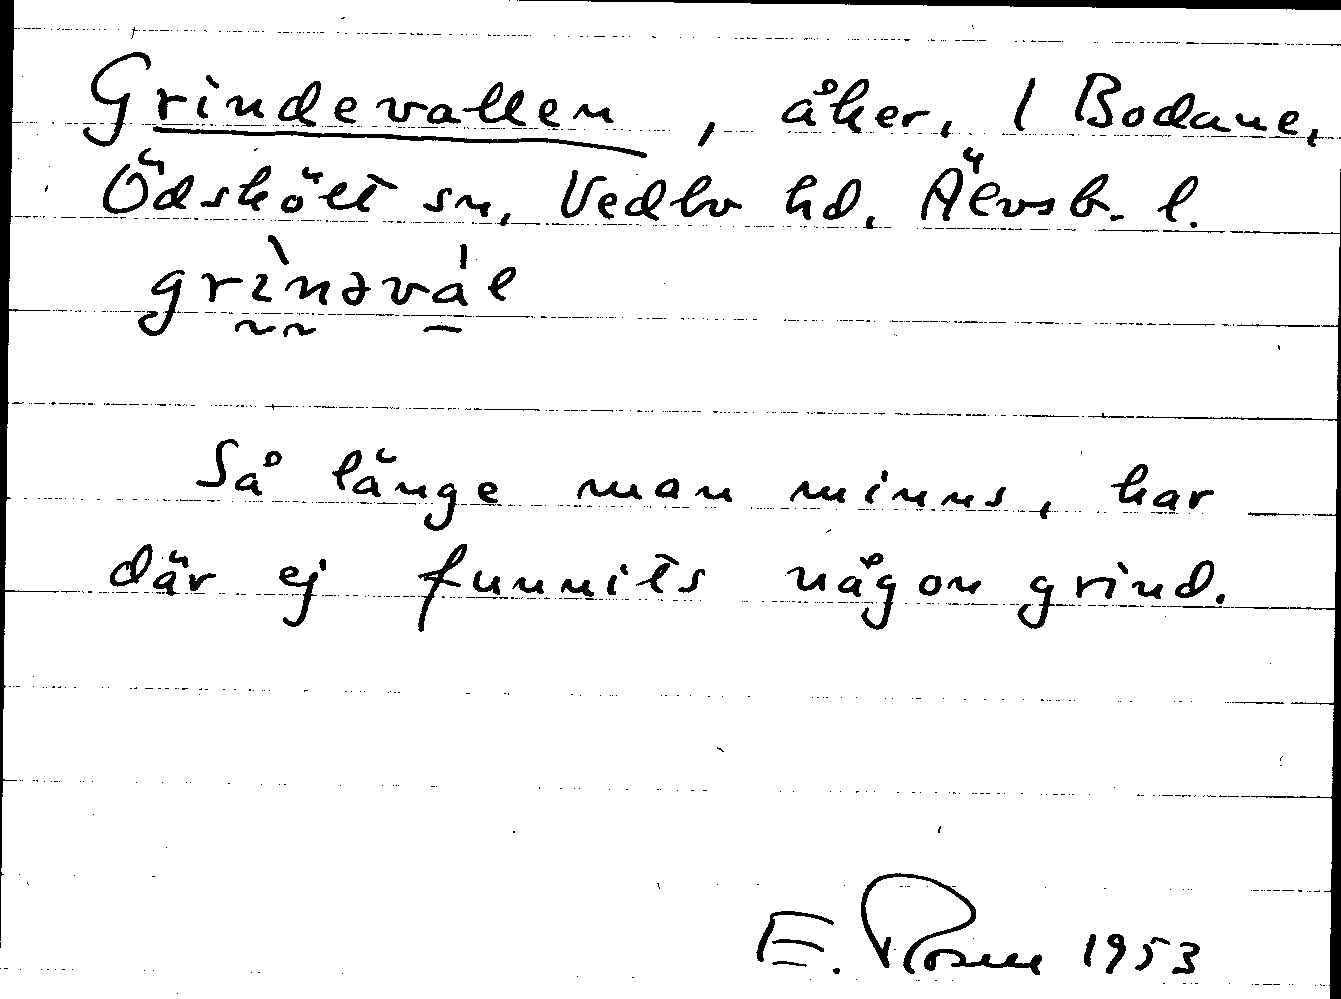 Grindevallen, åker, 1 Bodane,
Ödskölt sn, Vedbo hd. Älvsb. l.
grìnəvál
Så länge man minns, har
där ej funnits någon grind.
E. Rosen 1953